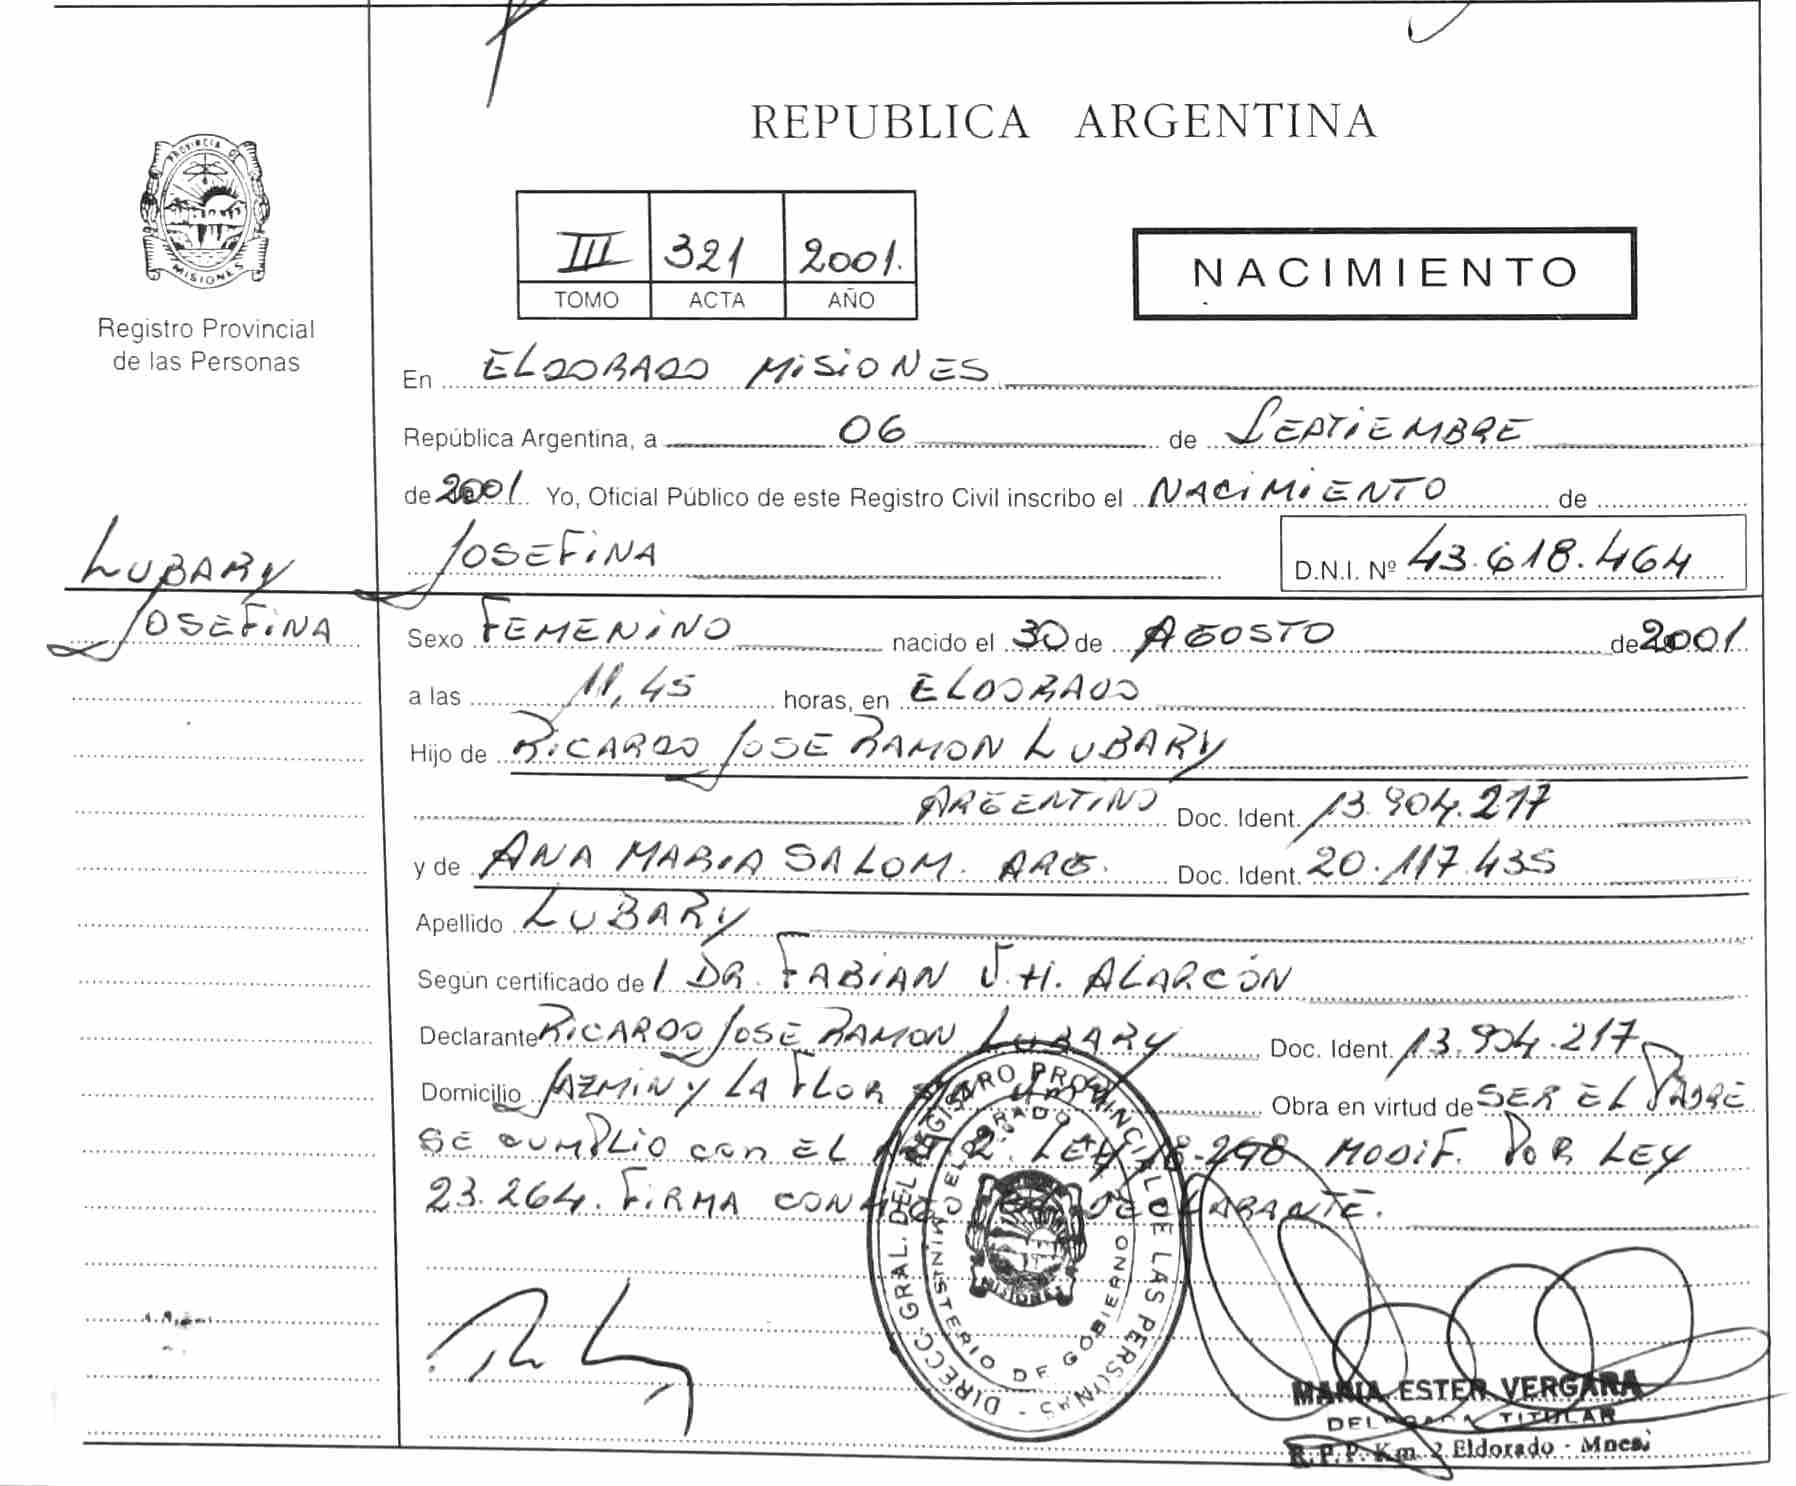 REPUBLICA ARGENTINA
PROVINCIA DE
MISIONES
Registro Provincial
de las Personas
III 321 2001.
TOMO ACTA AÑO
NACIMIENTO
En ELDORADO MISIONES
República Argentina, a 06 de SEPTIEMBRE
de 2001 Yo, Oficial Público de este Registro Civil inscribo el NACIMIENTO de
JOSEFINA D.N.I. Nº 43.618.464
LUBARY
JOSEFINA
Sexo FEMENINO nacido el 30 de AGOSTO de 2001
a las 11,45 horas, en ELDORADO
Hijo de RICARDO JOSE RAMON LUBARY
ARGENTINO Doc. Ident. 13.904.217
y de ANA MARIA SALOM. ARG. Doc. Ident. 20.117.435
Apellido LUBARY
Según certificado de / DR. FABIAN J.H. ALARCÓN
Declarante RICARDO JOSE RAMON LUBARY Doc. Ident. 13.904.217
Domicilio JAZMIN Y LA FLOR Obra en virtud de SER EL PADRE
SE CUMPLIO con EL ART 2. LEY 18.298 MODIF. POR LEY
23.264. FIRMA CONMIGO EL DECLARANTE.
DIRECC. GRAL. DEL REGISTRO PROVINCIAL DE LAS PERSONAS -
MINISTERIO DE GOBIERNO
ELDORADO
MISIONES
MARIA ESTER VERGARA
DELEGADA TITULAR
R.P.P. Km. 2 Eldorado - Mnes.